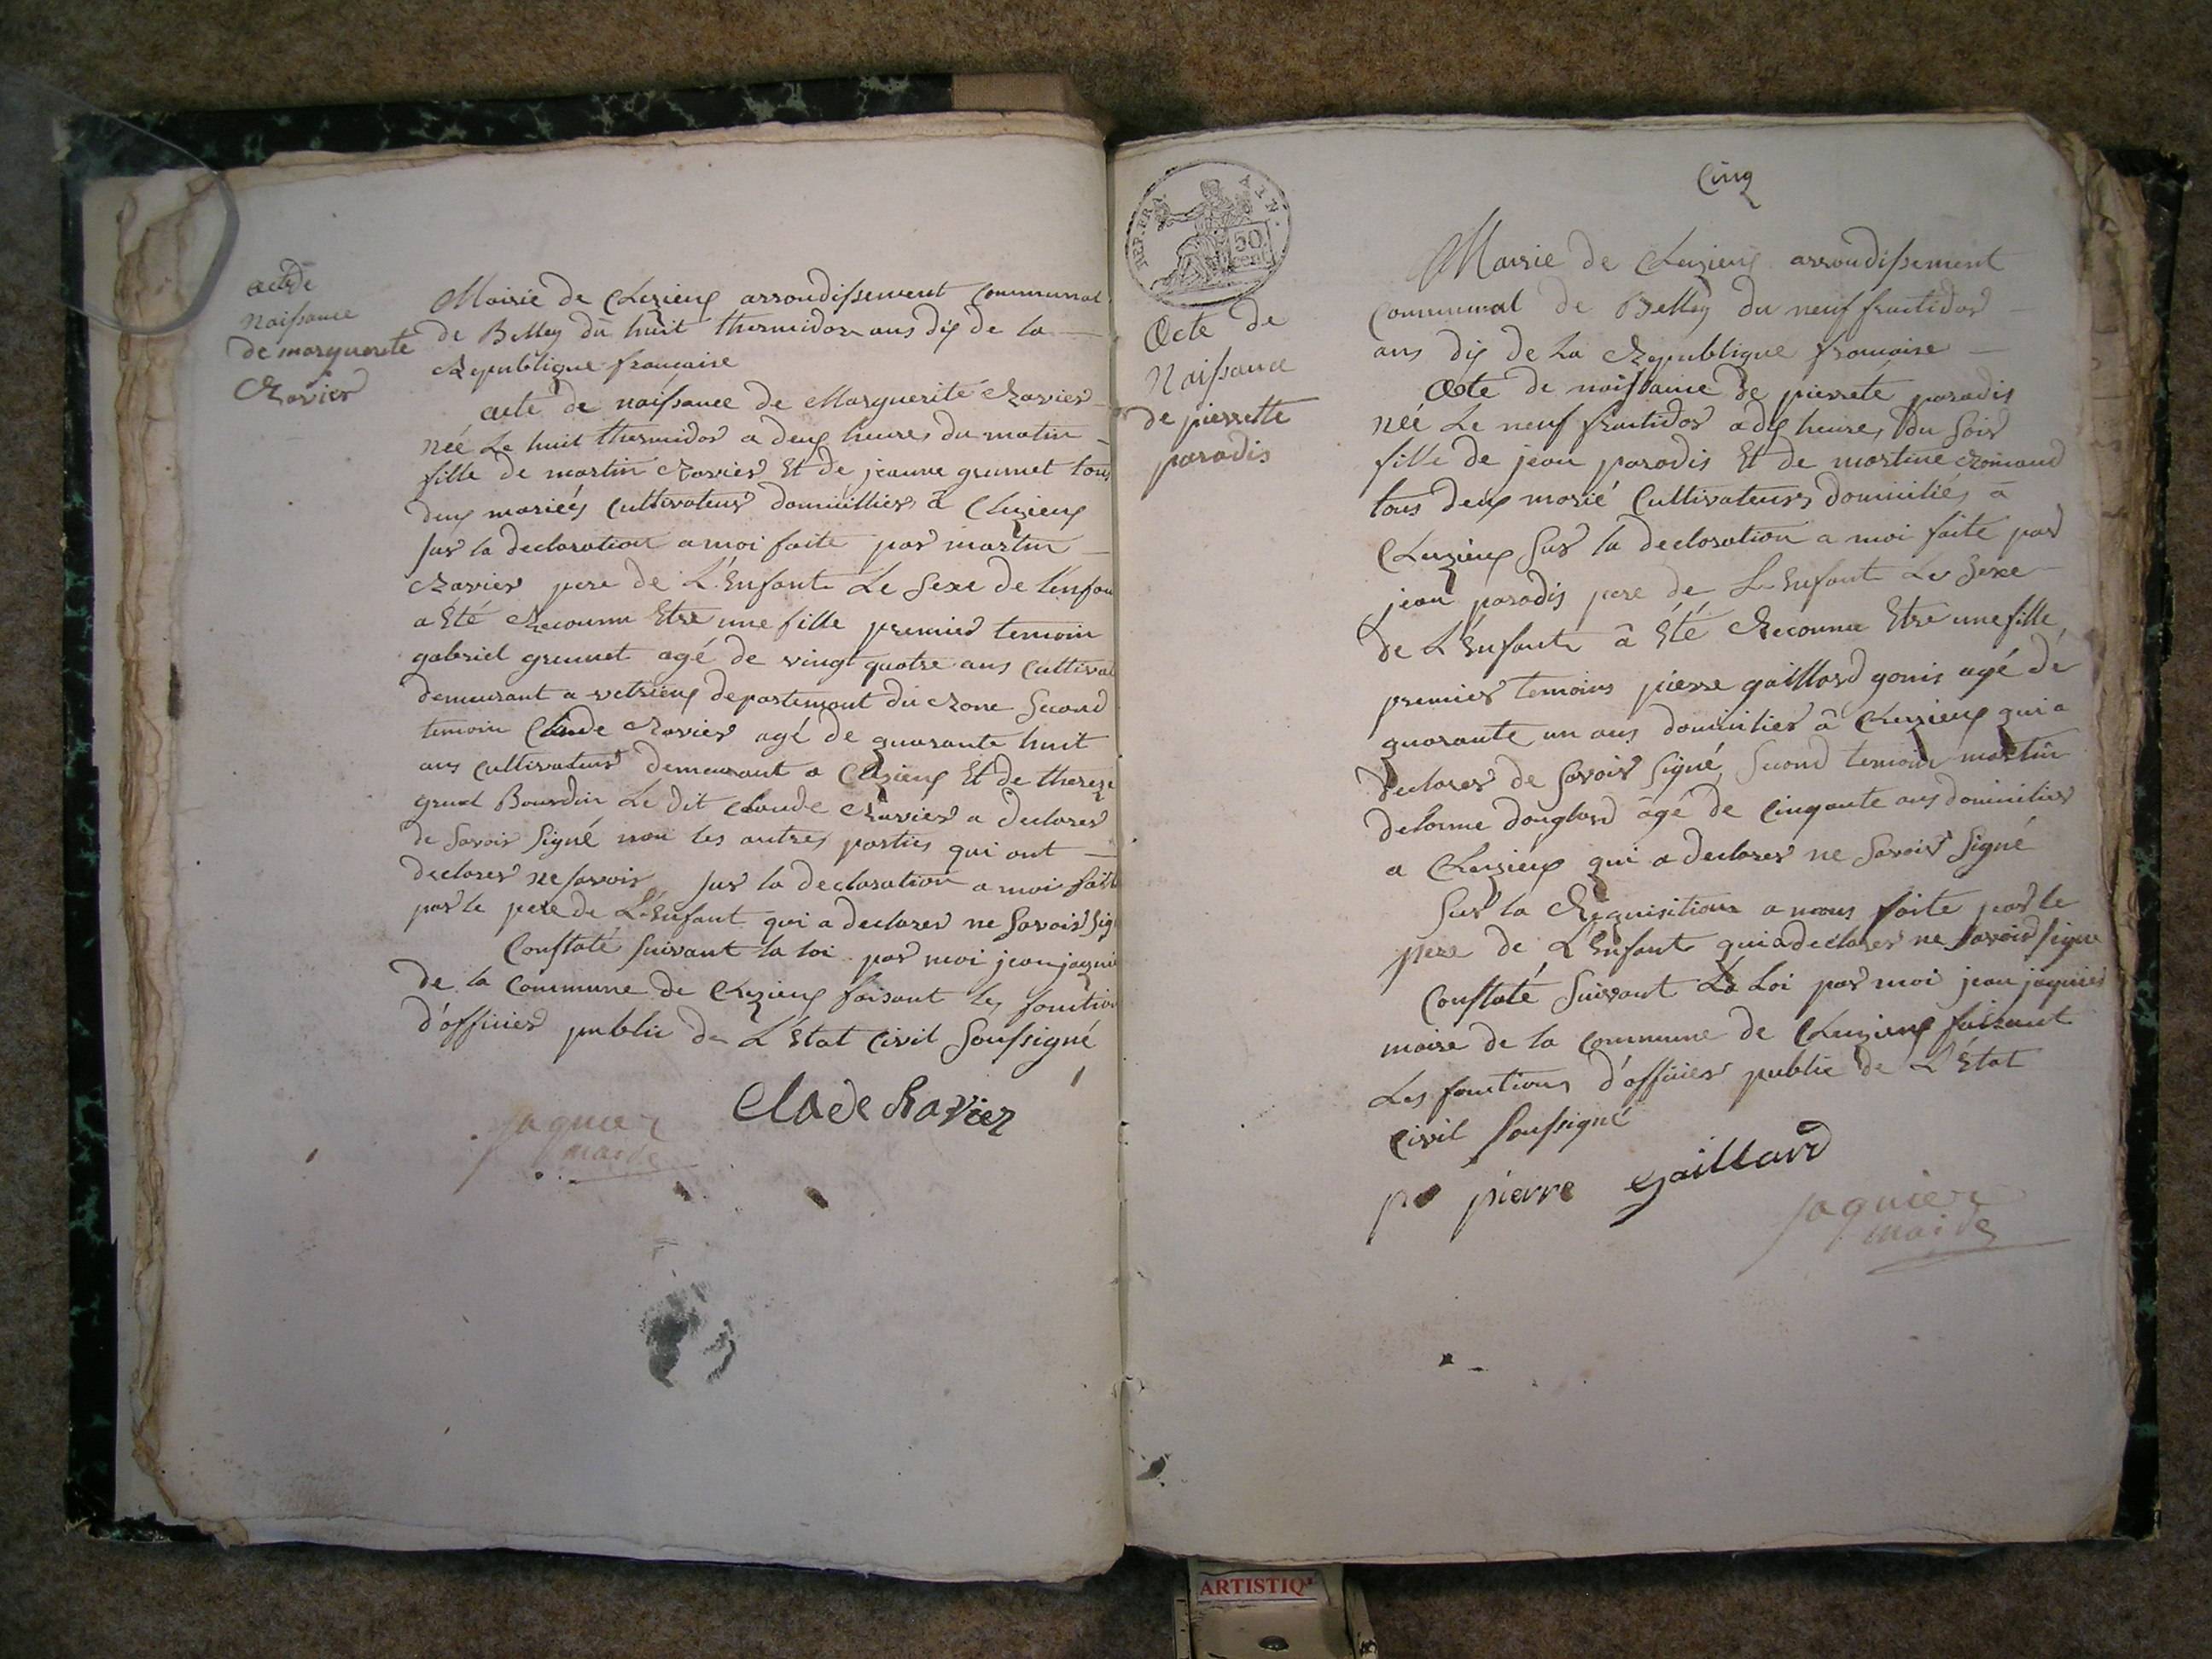 acte de
Naissance
de marguerite
Ravier
Mairie de Luzieux arrondissement communal
de Belley du huit thermidor ans dix de la
Republique francaise
acte de naissance de Marguerite Ravier
née Le huit thermidor a deux heures du matin
fille de martin Ravier Et de jeanne grumet tous
deux mariés cultivateur domicillier à
sur la declaration a moi faite par martin
Ravier pere de L'Enfant Le Sexe de l'enfan
a Eté Reconnu Etre une fille premier temoin
gabriel grumet agé de vingt quatre ans cultivat
demeurant a vetrieux departement du Rone Second
temoin Claude Ravier agé de quarante huit
ans cultivateur demeurant a Et de thereze
Bourdin Le dit claude Ravier a declarer
de Savoir Signé non les autres parties qui ont
declarer ne savoir sur la declaration a moi faite
par le pere de L'Enfant qui a declarer ne Savoir Sig
Constaté Suivant la loi par moi jean jaquie
de la Commune de faisant les fonction
d'officier public de L'Etat Civil Soussigné
jaquier
maide
Clade Ravier
REP. FRA
AIN.
50
cent
Cinq
Acte de
Naissance
de pierrette
paradis
Mairie de arrondissement
communal de Belley du neuf fructidor
ans dix de La Republique francaise
Acte de naissance de pierrete paradis
née Le neuf fructidor a dix heures du Soir
fille de jean paradis Et de martine Romand
tous deux marié Cultivateurs domiciliés à
Sur la declaration a moi faite par
jean paradis pere de L'Enfant Le Sexe
de L'Enfant à Eté Reconnu Etre une fille
premier temoins pierre gaillard gonis agé de
quarante un ans domicilier à qui a
declarer de Savoir Signé Second temoin martin
delorme douglard âgé de Cinquante ans domicilier
a qui a declarer ne Savoir Signé
Sur la Requisition a nous faite par le
pere de L'Enfant qui a declarer ne Savoir signé
Constaté Suivant La Loi par moi jean jaquier
maire de la commune de faisant
Les fonctions d'officier public de L'Etat
Civil Soussigné
pierre gaillard
jaquier
maide
ARTISTIQ